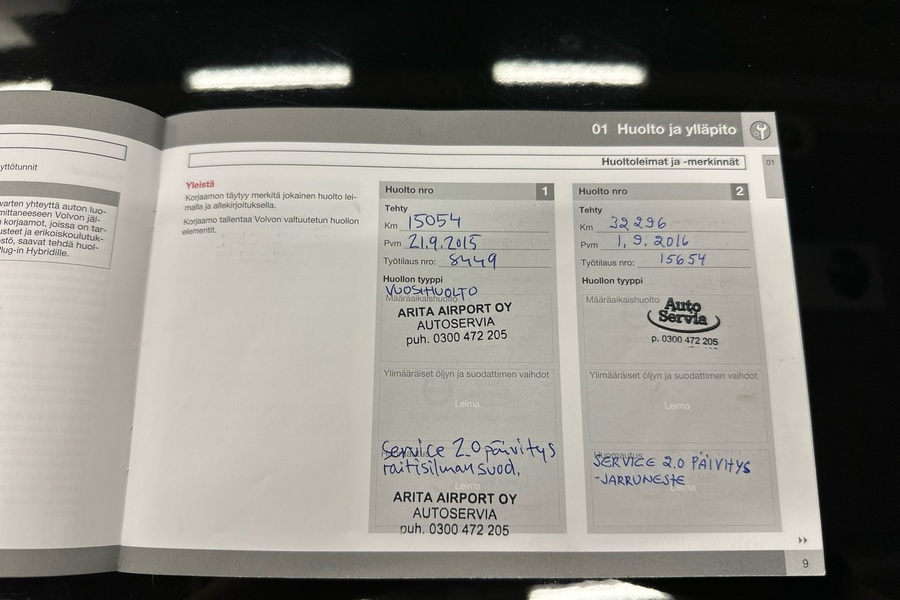 yttötunnit
varten yhteyttä auton luo-
mittaneeseen Volvon jäl-
korjaamot, joissa on tar-
usteet ja erikoiskoulutuk-
stö, saavat tehdä huol-
lug-in Hybridille.
01 Huolto ja ylläpito
Huoltoleimat ja -merkinnät
01
Yleistä
Korjaamon täytyy merkitä jokainen huolto lei-
malla ja allekirjoituksella.
Korjaamo tallentaa Volvon valtuutetun huollon
elementit.
Huolto nro 1
Tehty
Km 15054
Pvm 21.9.2015
Työtilaus nro: 8449
Huollon tyyppi
VUOSIHUOLTO
Määräaikaishuolto
ARITA AIRPORT OY
AUTOSERVIA
puh. 0300 472 205
Ylimääräiset öljyn ja suodattimen vaihdot
Leima
Service 2.0 päivitys
raitisilmansuod.
Leima
ARITA AIRPORT OY
AUTOSERVIA
puh. 0300 472 205
Huolto nro 2
Tehty
Km 32296
Pvm 1.9.2016
Työtilaus nro: 15654
Huollon tyyppi
Määräaikaishuolto
Auto
Servia
p. 0300 472 205
Ylimääräiset öljyn ja suodattimen vaihdot
Leima
Huomautus
SERVICE 2.0 PÄIVITYS
-JARRUNESTE
Leima
9